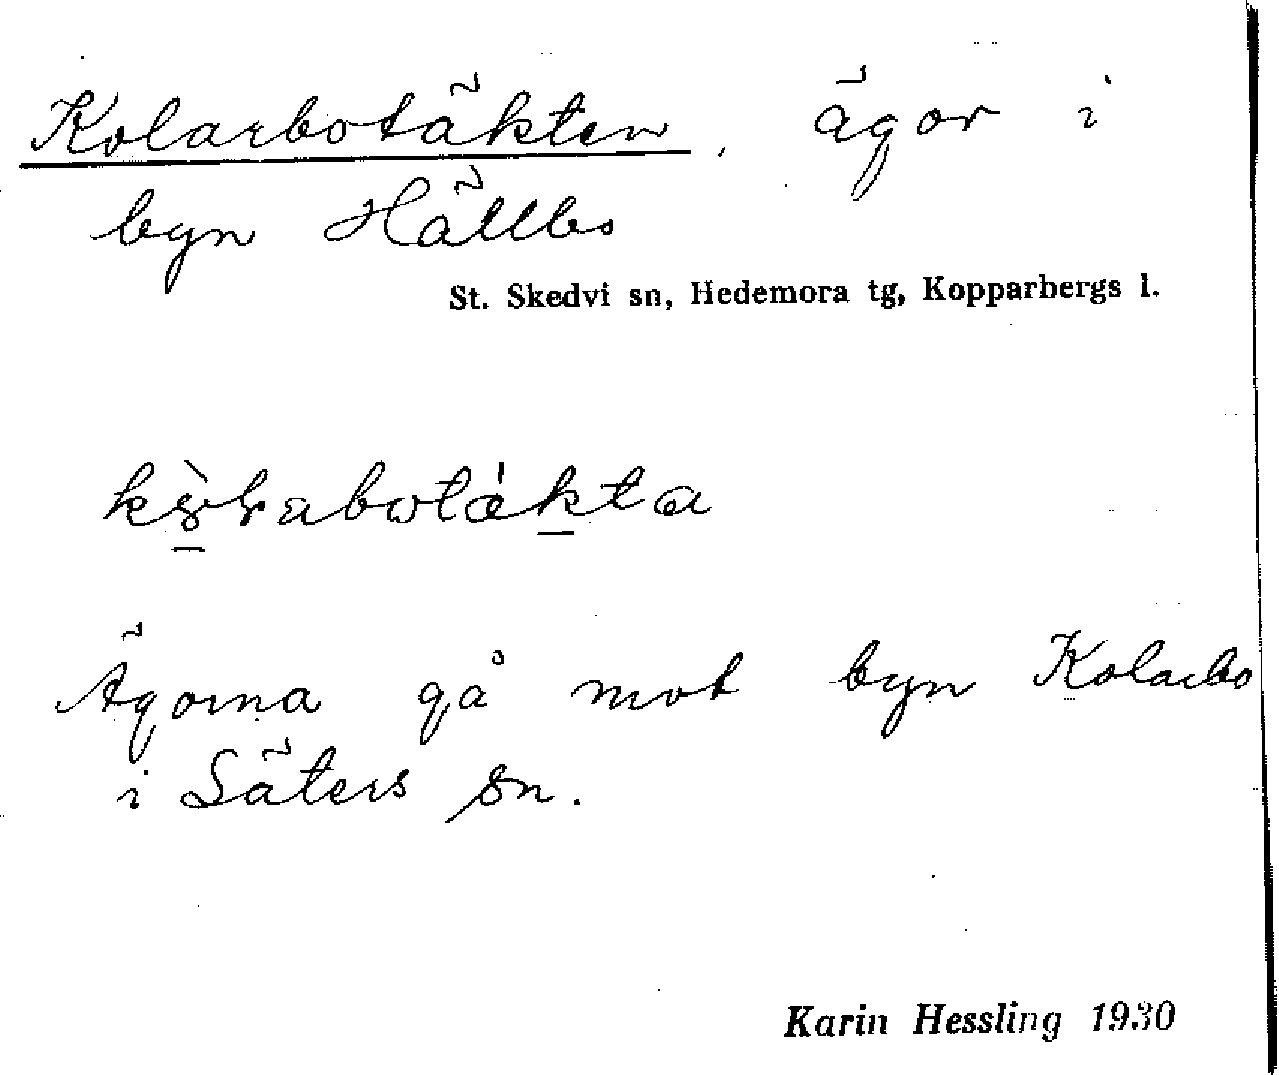 Kolarbotäkten, ägor i
byn Hällbo
St. Skedvi sn, Hedemora tg, Kopparbergs l.
Ägorna gå mot byn Kolarbo
i Säters sn.
Karin Hessling 1930